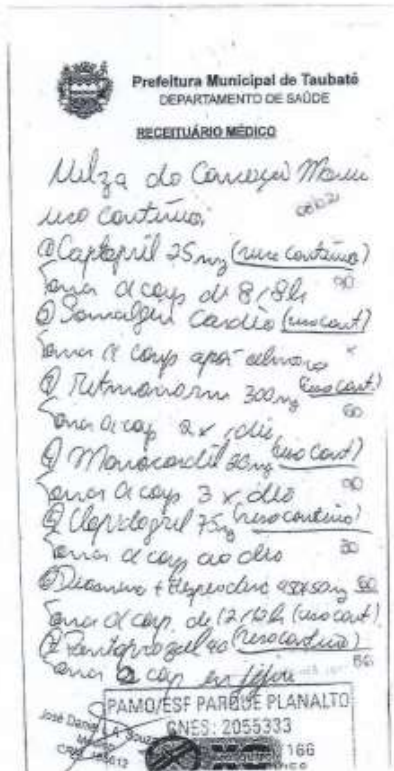 Prefeitura Municipal de Taubaté
DEPARTAMENTO DE SAÚDE
RECEITUÁRIO MÉDICO
uso contínuo:
Captopril 25mg (uso contínuo)
Tomar 01 cp de 8/8h 90
Somalgin Cardio (uso cont)
Tomar 01 comp após almoço
Ritmonorm 300mg (uso cont.)
Tomar 01 cp 2x dia 60
Monocordil 20mg (uso cont)
Tomar 01 cp 3x dia 90
Clopidogrel 75mg (uso contínuo)
Tomar 01 cp ao dia 30
Diosmina + Hesperidina 450x50mg 60
Tomar 01 cp. de 12/12h (uso cont)
Pantoprazol 40 (uso contínuo)
Tomar 2 cp em jejum 60
PAMO/ESF PARQUE PLANALTO
CNES: 2055333
José Daniel L.A. Souza
Médico
166